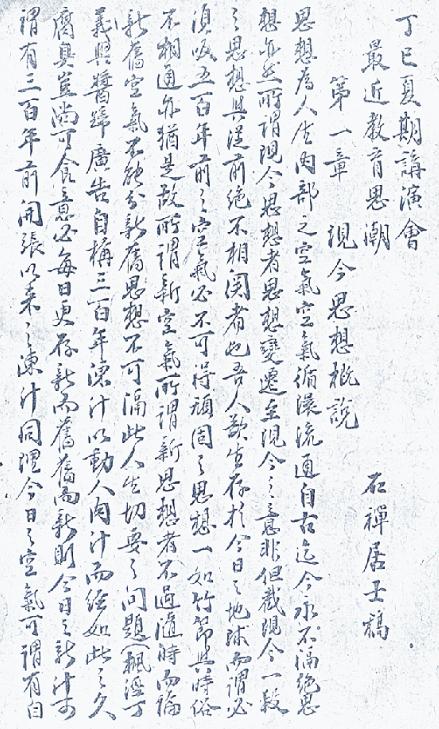 丁巳夏期講演會
最近教育思潮
石禪居士稿
第一章 現今思想概說
思想爲人生內部之空氣空氣循環流通自古迄今永不隔絕思
想亦然所謂現今思想者思想變遷至現今之意非但截現今一段
之思想與從前絕不相關者也吾人欲生存於今日之地球而謂必
須吸五百年前之空氣必不可得頑固之思想一如竹節與時俗
不相通亦猶是故所謂新空氣所謂新思想者不過隨時而論
新舊空氣不能分新舊思想不可隔此人生切要之問題
義興醬蹄廣告自稱三百年陳汁以動人肉汁而經如此之久
腐臭豈尚可食意必每日更存新而舊舊而新則今日之新汁可
謂有三百年前開張以來之陳汁同理今日之空氣可謂有自